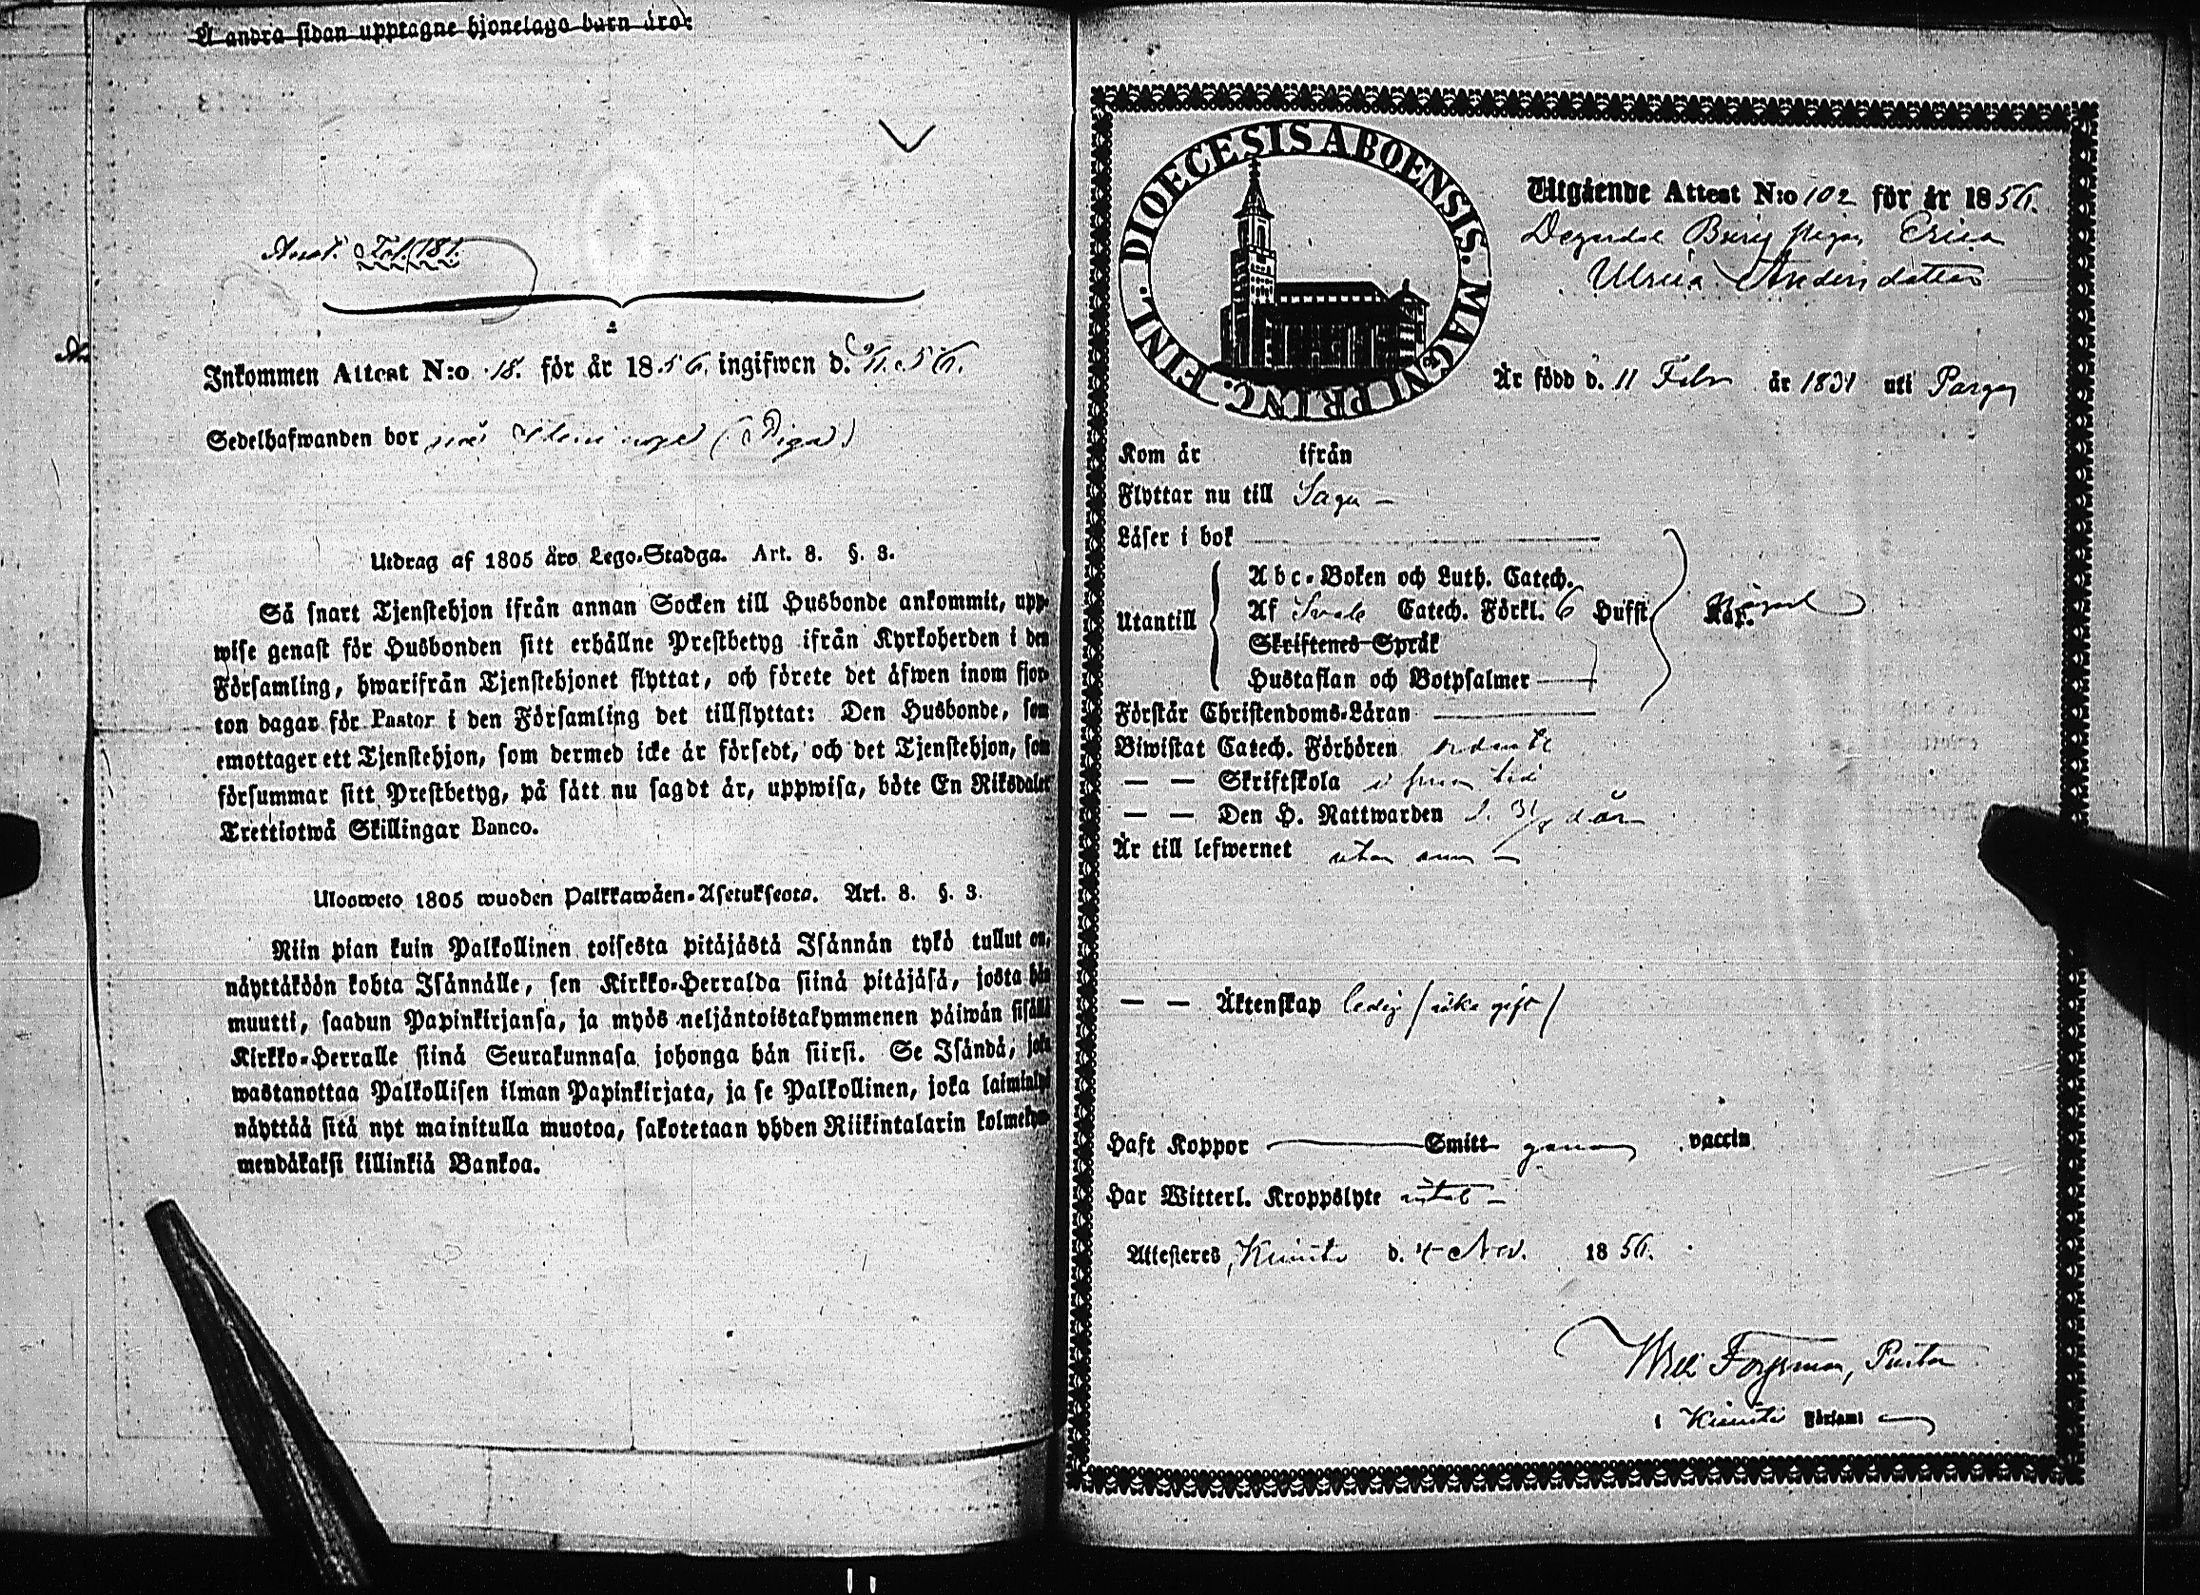 Å andra sidan upptagne hjonelags barn äro:
Anot. Fol. 181.
Inkommen Attest N:o 18. för år 1856. ingifwen d. 9/11 56.
Sedelhafwanden bor på (Piga)
Utdrag af 1805 års Lego-Stadga. Art. 8. §. 3.
Så snart Tjenstehjon ifrån annan Socken till Husbonde ankommit, upp-
wise genast för Husbonden sitt erhållne Prestbetyg ifrån Kyrkoherden i den
Församling, hwarifrån Tjenstehjonet flyttat, och förete det äfwen inom fjor-
ton dagar för Pastor i den Församling det tillflyttat: Den Husbonde, som
emottager ett Tjenstehjon, som dermed icke är försedt, och det Tjenstehjon, som
försummar sitt Prestbetyg, på sätt nu sagdt är, uppwisa, böte En Riksdaler
Trettiotwå Skillingar Banco.
Ulosweto 1805 wuoden Palkkawäen-Asetuksesta. Art. 8. §. 3.
Niin pian kuin Palkollinen toisesta pitäjästä Isännän tykö tullut on,
näyttäköön kohta Isännälle, sen Kirkko-Herralda siinä pitäjäsä, josta hän
muutti, saadun Papinkirjansa, ja myös neljäntoistakymmenen päiwän sisällä
Kirkko-Herralle siinä Seurakunnasa johonga hän siirsi. Se Isändä, joka
wastanottaa Palkollisen ilman Papinkirjata, ja se Palkollinen, joka laiminlyö
näyttää sitä nyt mainitulla muotoa, sakotetaan yhden Riikintalarin kolmekym-
mendäkaksi killinkiä Bankoa.
DIOECESIS ABOENSIS. MAGNI PRINC. FINL.
Utgående Attest N:o 102 för år 1856.
Degerdal Pigan Erica
Ulrica Andersdotter
Är född d. 11 Febr år 1831 uti Pargas
Kom år ifrån
Flyttar nu till Sagu
Läser i bok
Utantill
Abc-Boken och Luth. Catech.
Af Svebe Catech. Förkl. 6 Hufst.
Skriftenes Språk
Hustaflan och Botpsalmer
Förstår Christendoms-Läran
Biwistat Catech. Förhören
— — Skriftskola i sinom tid
— — Den H. Nattwarden d. 31/8 d. år
Är till lefwernet utan anm
— — Äktenskap ledig (icke gift)
Haft Koppor Smitt genom vaccin
Har Witterl. Kroppslyte intet
Attesteras, Kimito d. 4 Nov. 1856.
Forsman, Pastor
i Kimito Församl